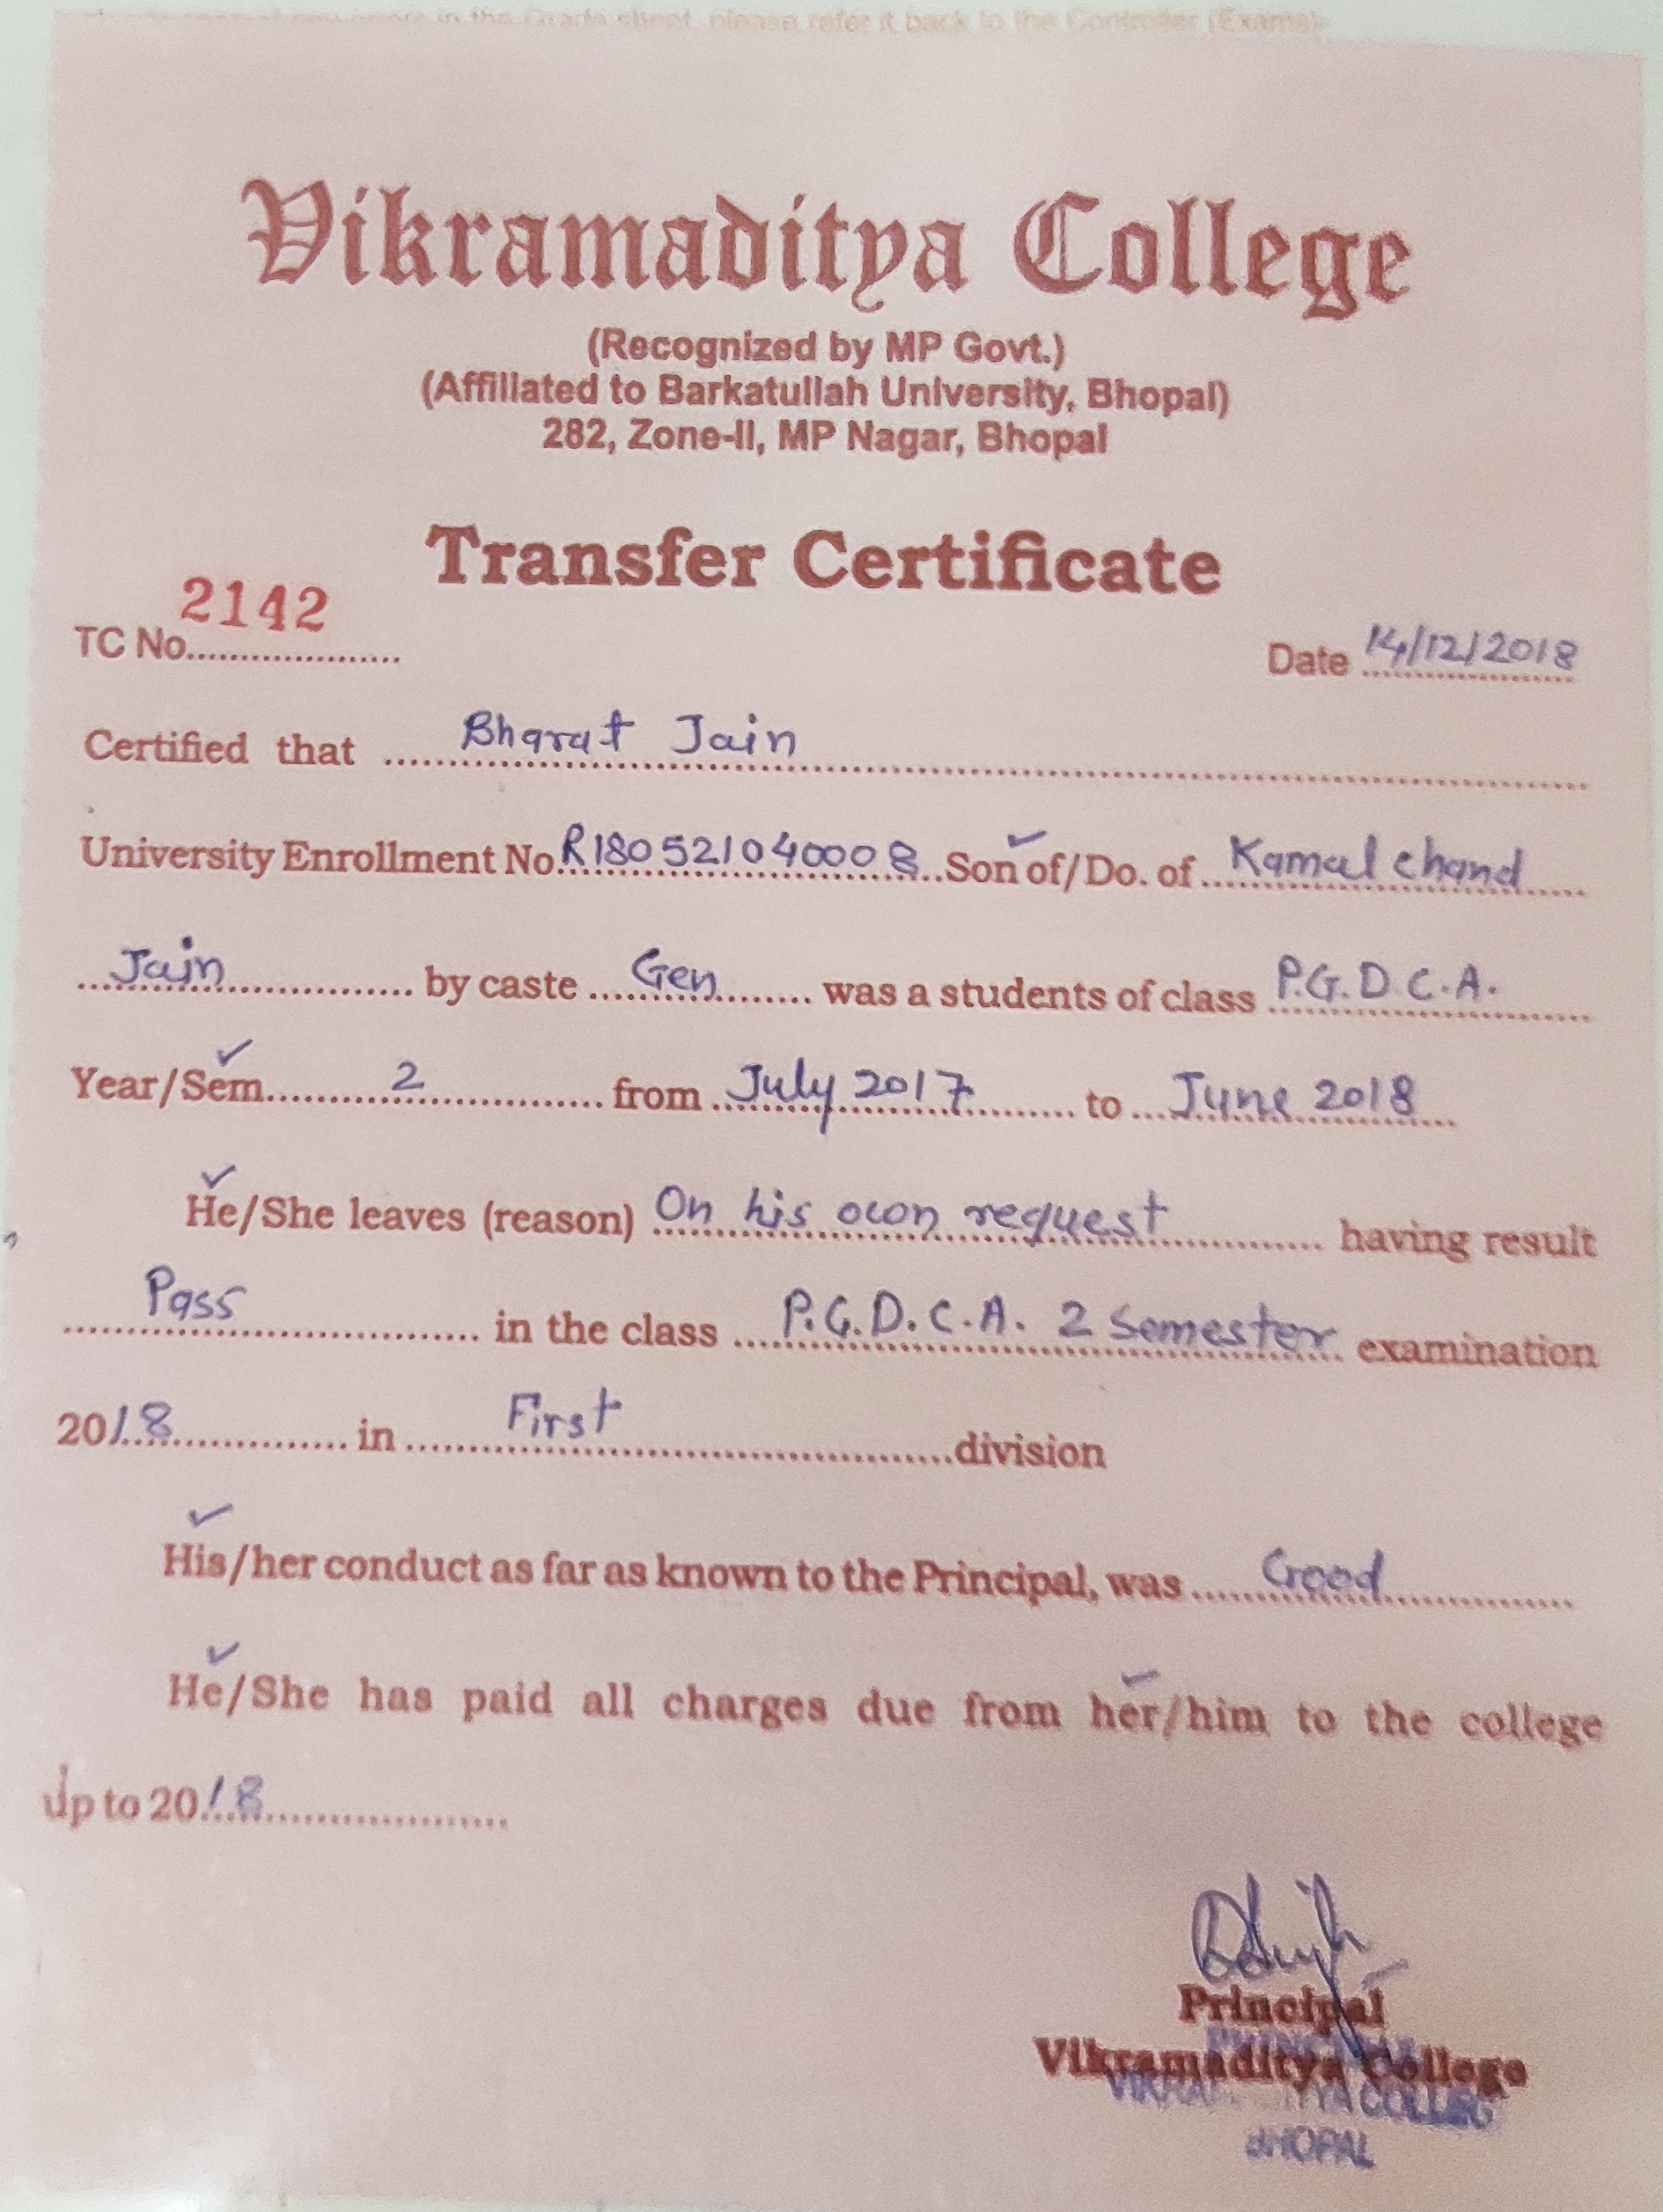 in the Grade sheet, please refer it back to the Controller (Exams)
Vikramaditya College
(Recognized by MP Govt.)
(Affiliated to Barkatullah University, Bhopal)
282, Zone-II, MP Nagar, Bhopal
Transfer Certificate
TC No. 2142 Date 14/12/2018
Certified that Bharat Jain
University Enrollment No. R180521040008 Son of/Do. of Kamal chand
Jain by caste Gen was a students of class P.G.D.C.A.
Year/Sem 2 from July 2017 to June 2018
He/She leaves (reason) On his own request having result
Pass in the class P.G.D.C.A. 2 Semester examination
2018 in First division
His/her conduct as far as known to the Principal, was Good
He/She has paid all charges due from her/him to the college
up to 2018
Principal
Vikramaditya College
BHOPAL